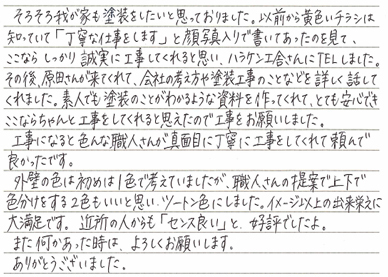 そろそろ我が家も塗装をしたいと思っておりました。以前から黄色いチラシは
知っていて「丁寧な仕事をします」と顔写真入りで書いてあったのを見て、
ここなら しっかり誠実に工事してくれると思い、ハラケン工舎さんにTELしました。
その後、原田さんが来てくれて、会社の考え方や塗装工事のことなどを詳しく話して
くれました。素人でも塗装のことがわかるような資料を作ってくれて、とても安心でき
ここならちゃんと工事をしてくれると思えたので工事をお願いしました。
工事になると色んな職人さんが真面目に丁寧に工事をしてくれて頼んで
良かったです。
外壁の色は初めは1色で考えていましたが、職人さんの提案で上下で
色分けをする2色もいいと思い、ツートン色にしました。イメージ以上の出来栄えに
大満足です。近所の人からも「センス良い」と、好評でしたよ。
また何かあった時は、よろしくお願いします。
ありがとうございました。